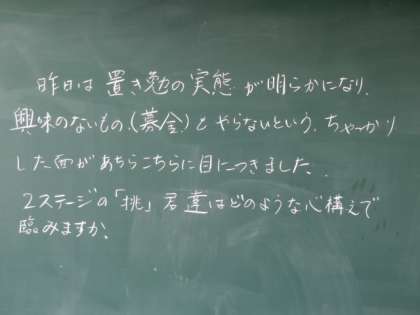 昨日は置き勉の実態が明らかになり、
興味のないもの、(募金)とやらないという、ちゃっかり
した面があちらこちらに目につきました。
2ステージの「挑」君達はどのような心構えで
臨みますか。